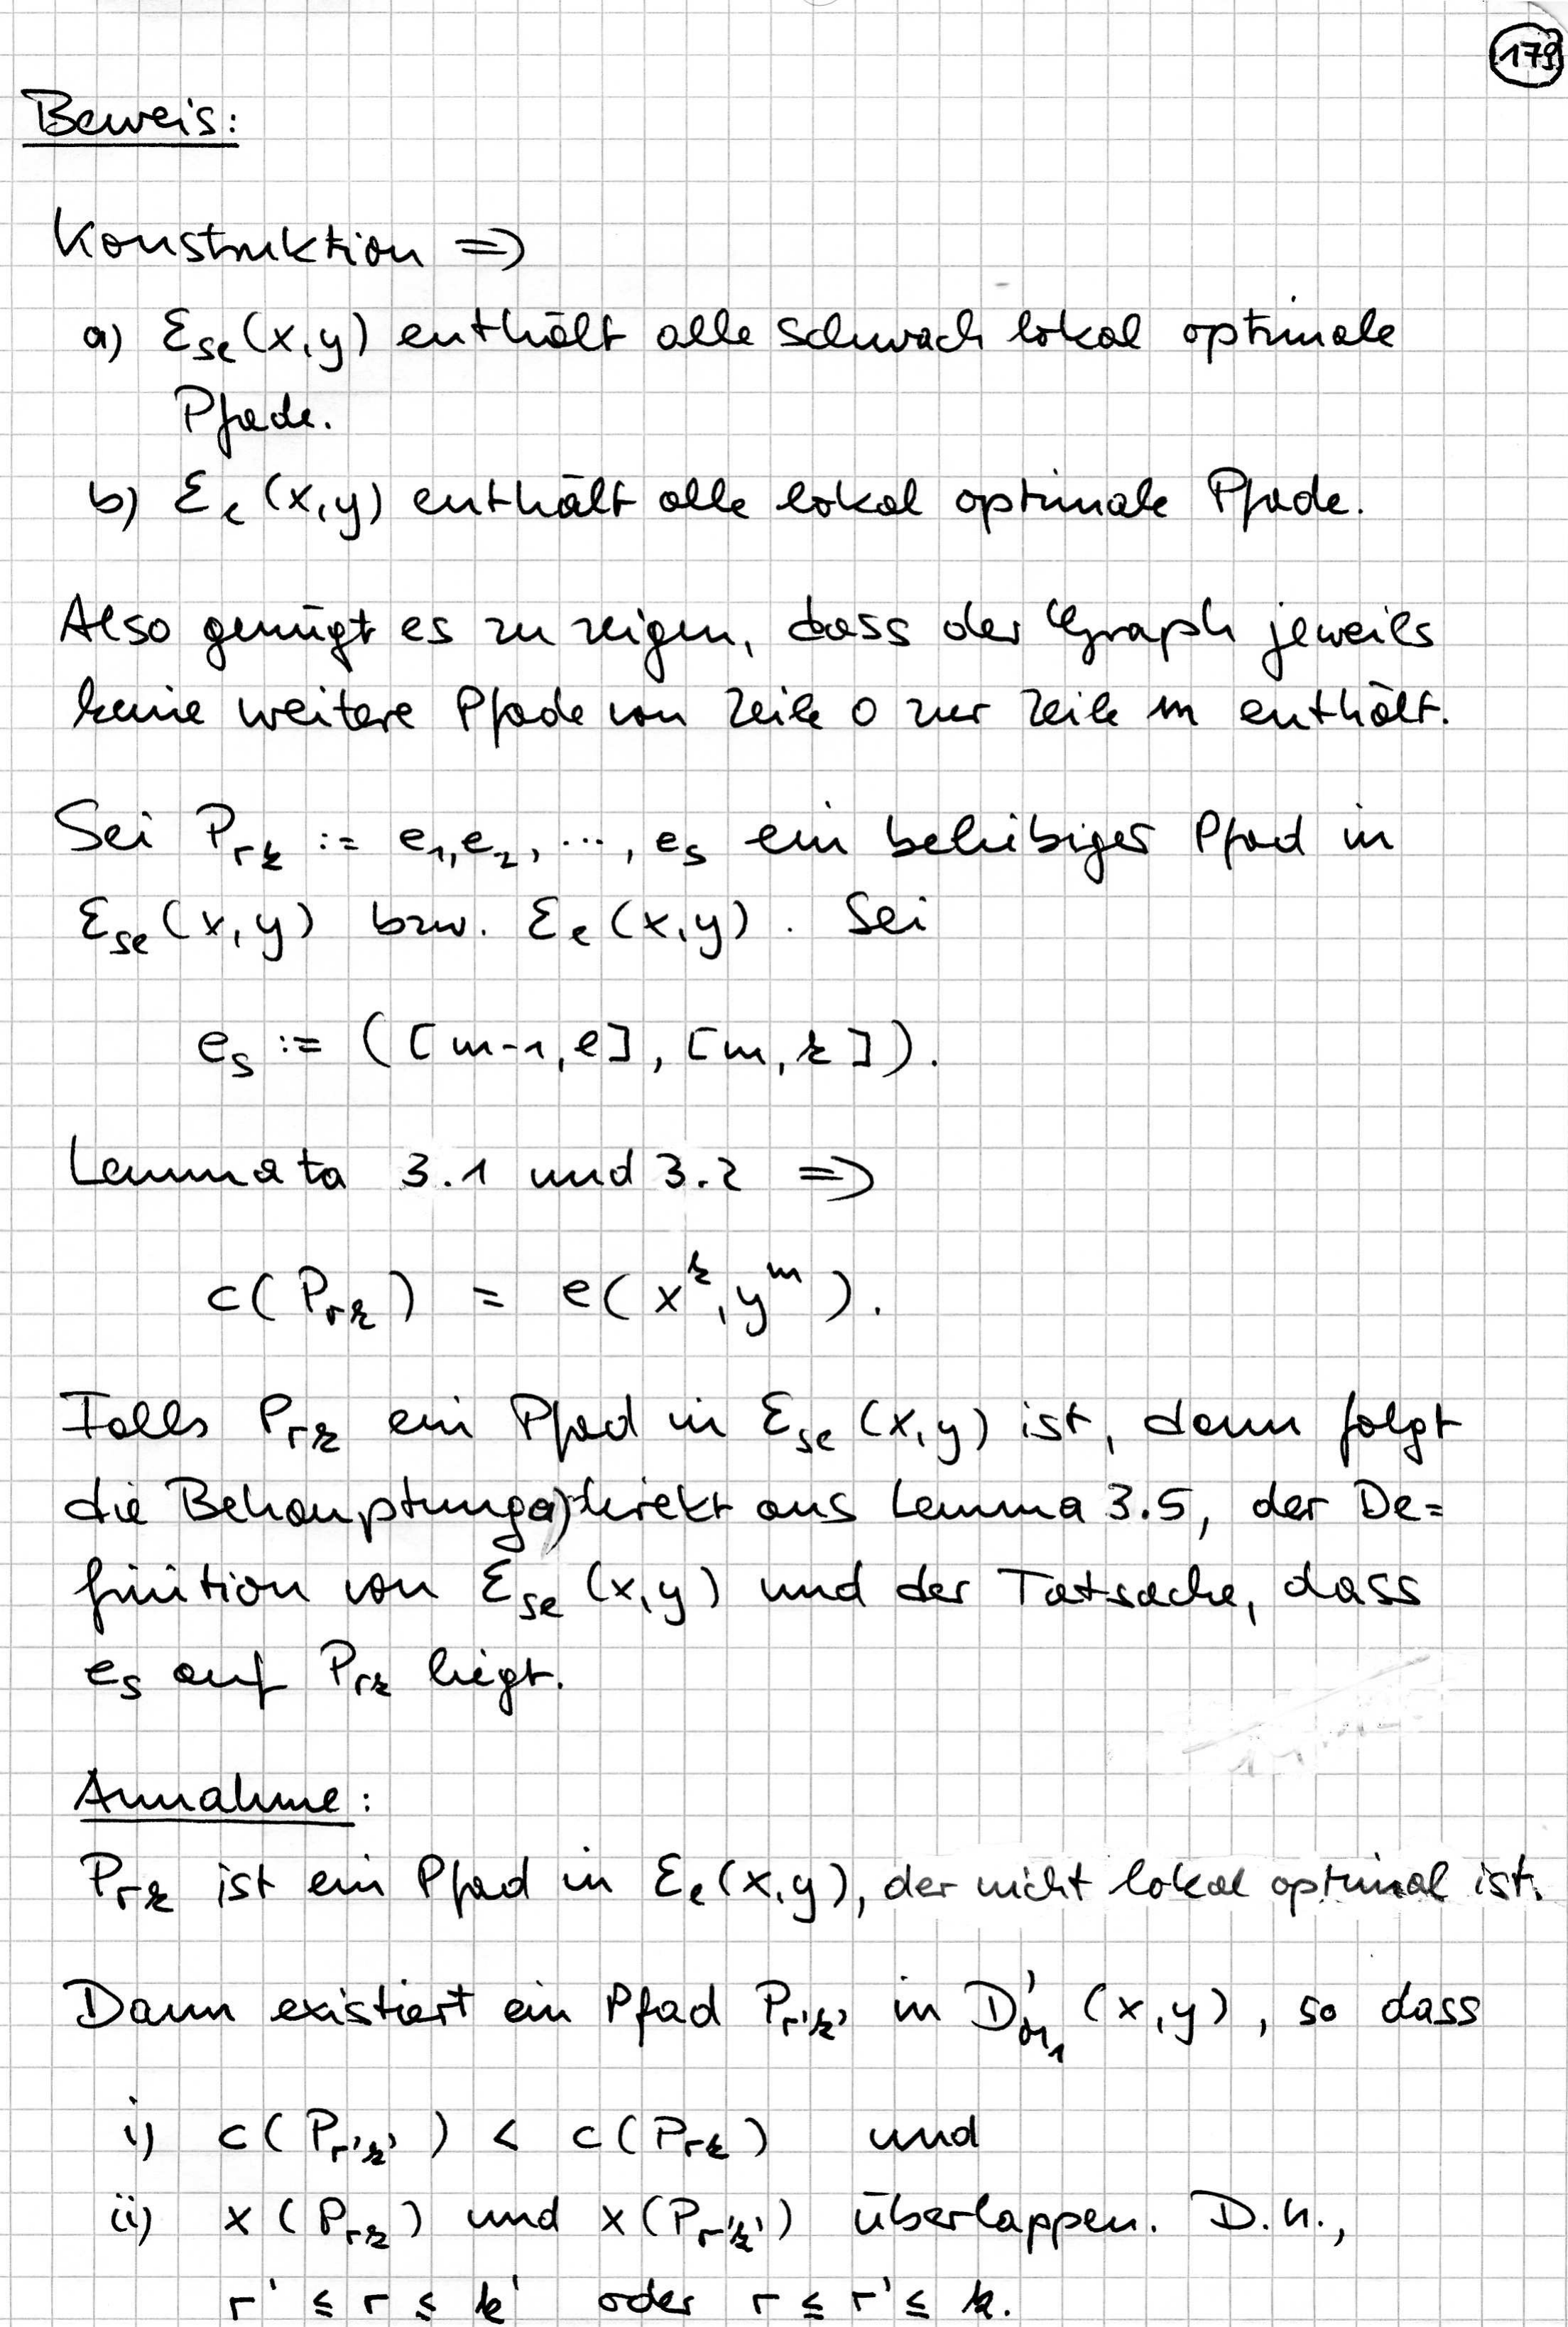 179
Beweis:
Konstruktion ⇒
a) Ɛ_sℓ(x,y) enthält alle schwach lokal optimale
Pfade.
b) Ɛ_ℓ(x,y) enthält alle lokal optimale Pfade.
Also genügt es zu zeigen, dass der Graph jeweils
keine weitere Pfade von Zeile 0 zur Zeile m enthält.
Sei P_rk := e_1, e_2, ..., e_s ein beliebiger Pfad in
Ɛ_sℓ(x,y) bzw. Ɛ_ℓ(x,y). Sei
e_s := ([m-1,ℓ], [m,k]).
Lemmata 3.1 und 3.2 ⇒
c(P_rk) = e(x^k, y^m).
Falls P_rk ein Pfad in Ɛ_sℓ(x,y) ist, dann folgt
die Behauptung a) direkt aus Lemma 3.5, der De=
finition von Ɛ_sℓ(x,y) und der Tatsache, dass
e_s auf P_rk liegt.
Annahme:
P_rk ist ein Pfad in Ɛ_ℓ(x,y), der nicht lokal optimal ist.
Dann existiert ein Pfad P_r'k' in D' (x,y), so dass
i) c(P_r'k') < c(P_rk) und
ii) x(P_rk) und x(P_r'k') überlappen. D.h.,
r' ≤ r ≤ k' oder r ≤ r' ≤ k.